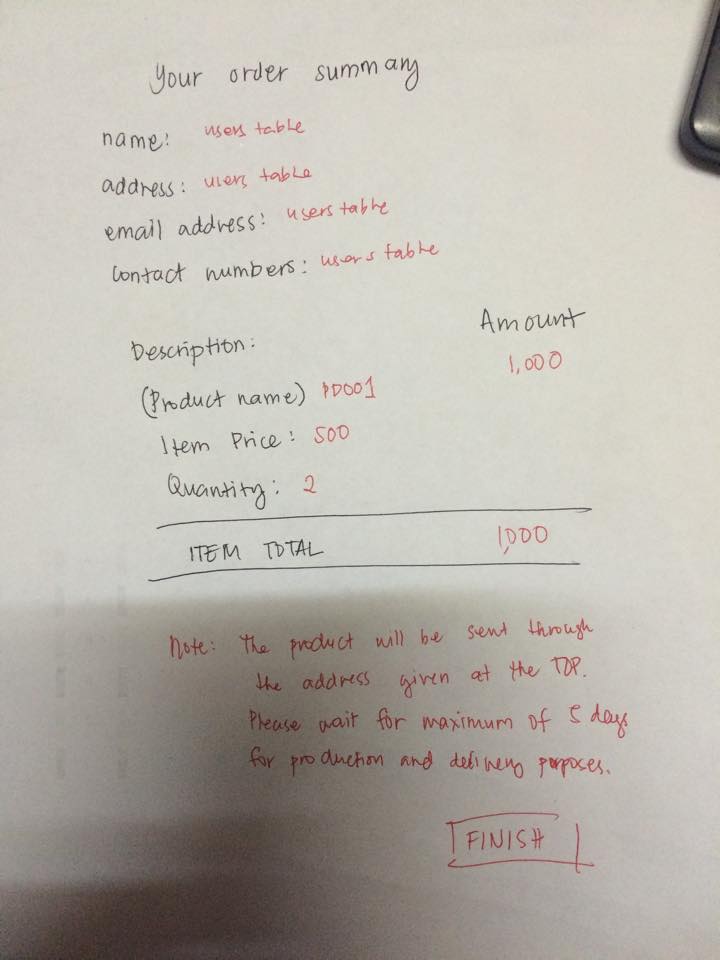 Your order summary
name: users table
address: users table
email address: users table
Contact numbers: users table
Description: Amount
(Product name) PD001 1,000
Item Price: 500
Quantity: 2
ITEM TOTAL 1,000
Note: The product will be sent through
the address given at the TOP.
Please wait for maximum of 5 days
for production and delivery purposes.
FINISH